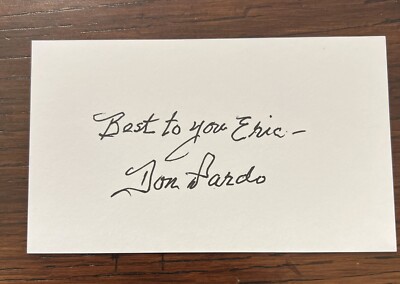 Best to you Eric -
Don Pardo